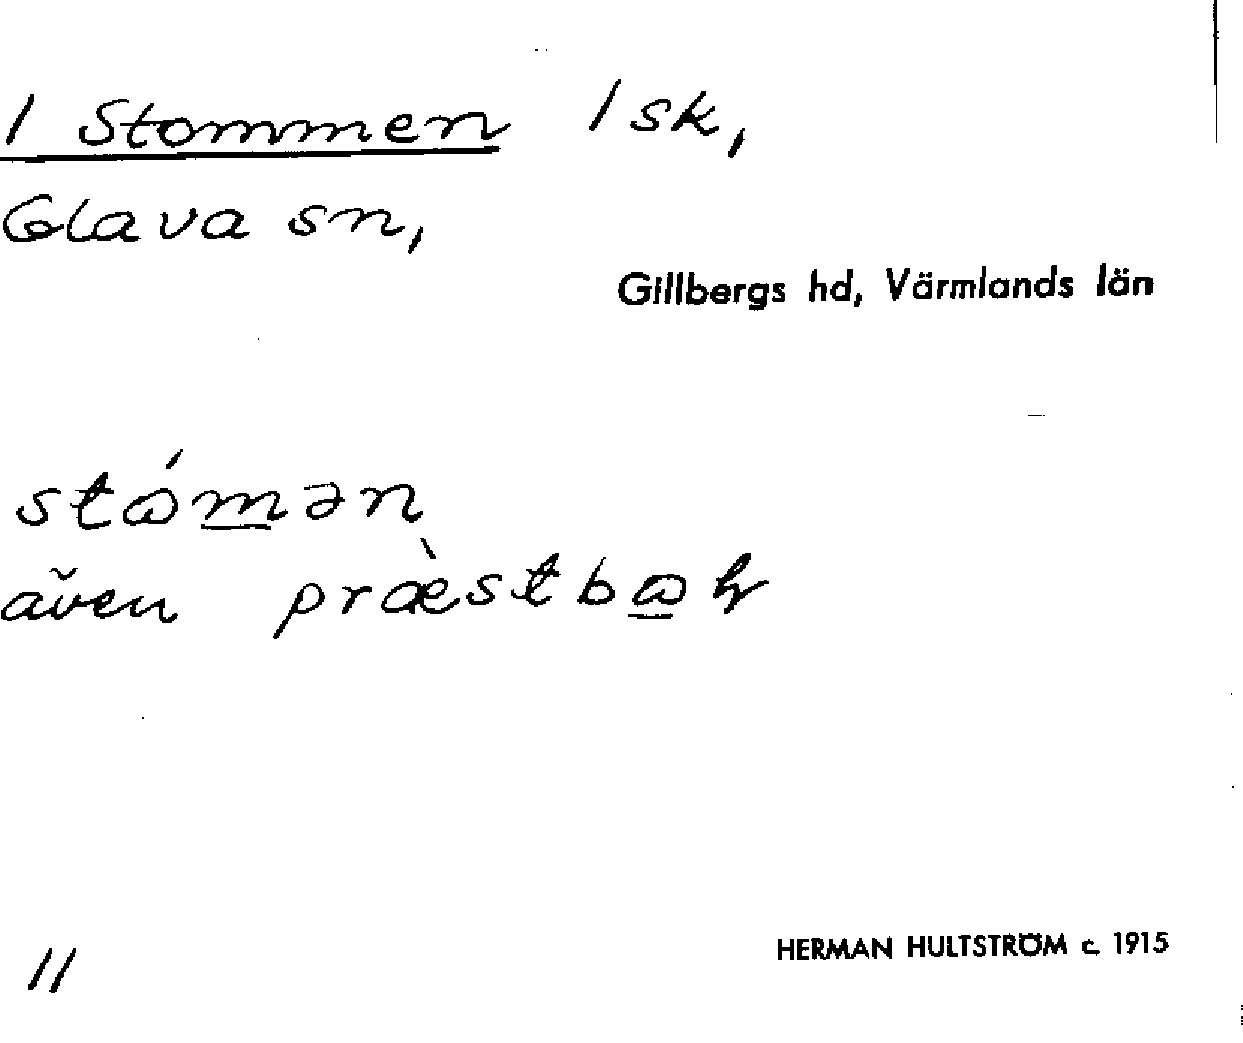 1 Stommen 1 sk,
Glava sn,
Gillbergs hd, Värmlands län
stώmən
även præ̀stbωɽ
HERMAN HULTSTRÖM c. 1915
11